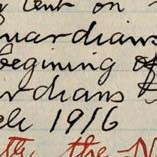 lent on
Guardians
begining of
ardians B
1916
the